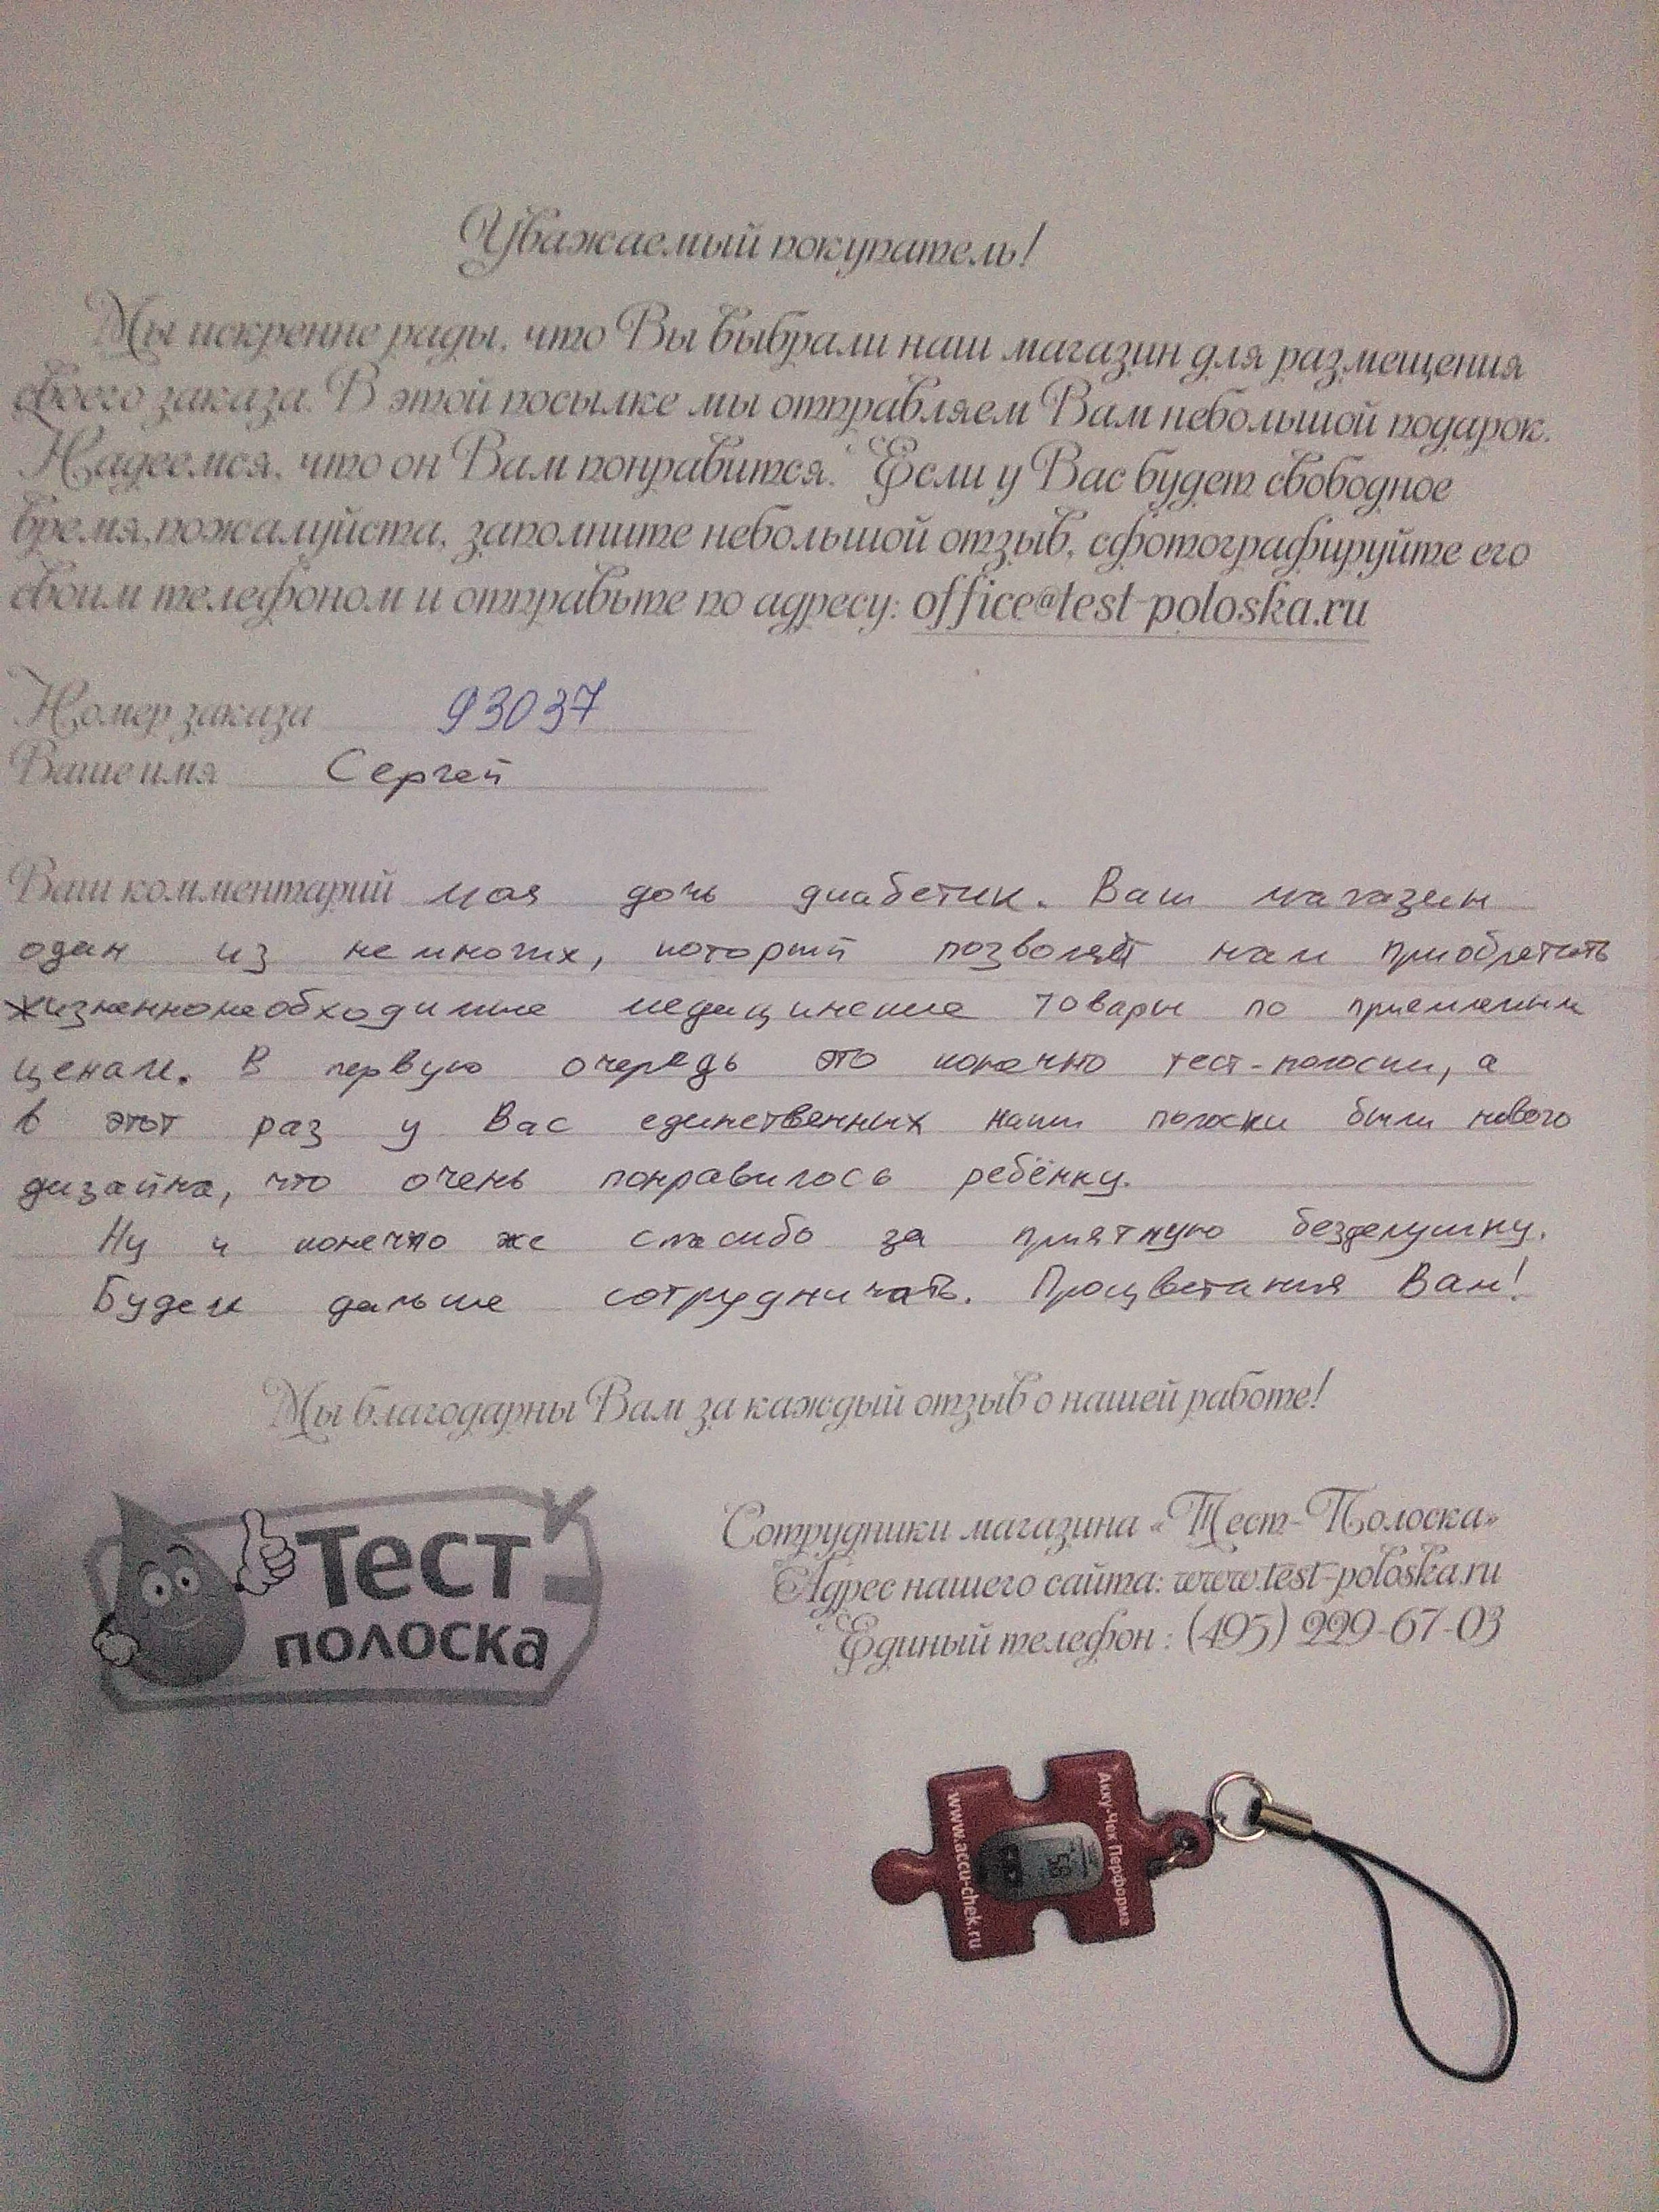 Уважаемый покупатель!
Мы искренне рады, что Вы выбрали наш магазин для размещения
своего заказа. В этой посылке мы отправляем Вам небольшой подарок.
Надеемся, что он Вам понравится. Если у Вас будет свободное
время, пожалуйста, заполните небольшой отзыв, сфотографируйте его
своим телефоном и отправьте по адресу: office@test-poloska.ru
Номер заказа 93037
Ваше имя Сергей
Ваш комментарий Моя дочь диабетик. Ваш магазин
один из немногих, который позволяет нам приобретать
жизненнонеобходимые медицинские товары по приемлемым
ценам. В первую очередь это конечно тест-полоски, а
в этот раз у Вас единственных наши полоски были нового
дизайна, что очень понравилось ребёнку.
Ну и конечно же спасибо за приятную безделушку.
Будем дальше сотрудничать. Процветания Вам!
Мы благодарны Вам за каждый отзыв о нашей работе!
Тест
полоска
Сотрудники магазина «Тест-Полоска»
Адрес нашего сайта: www.test-poloska.ru
Единый телефон : (495) 229-67-03
Акку-Чек Перформа
5.6
www.accu-chek.ru